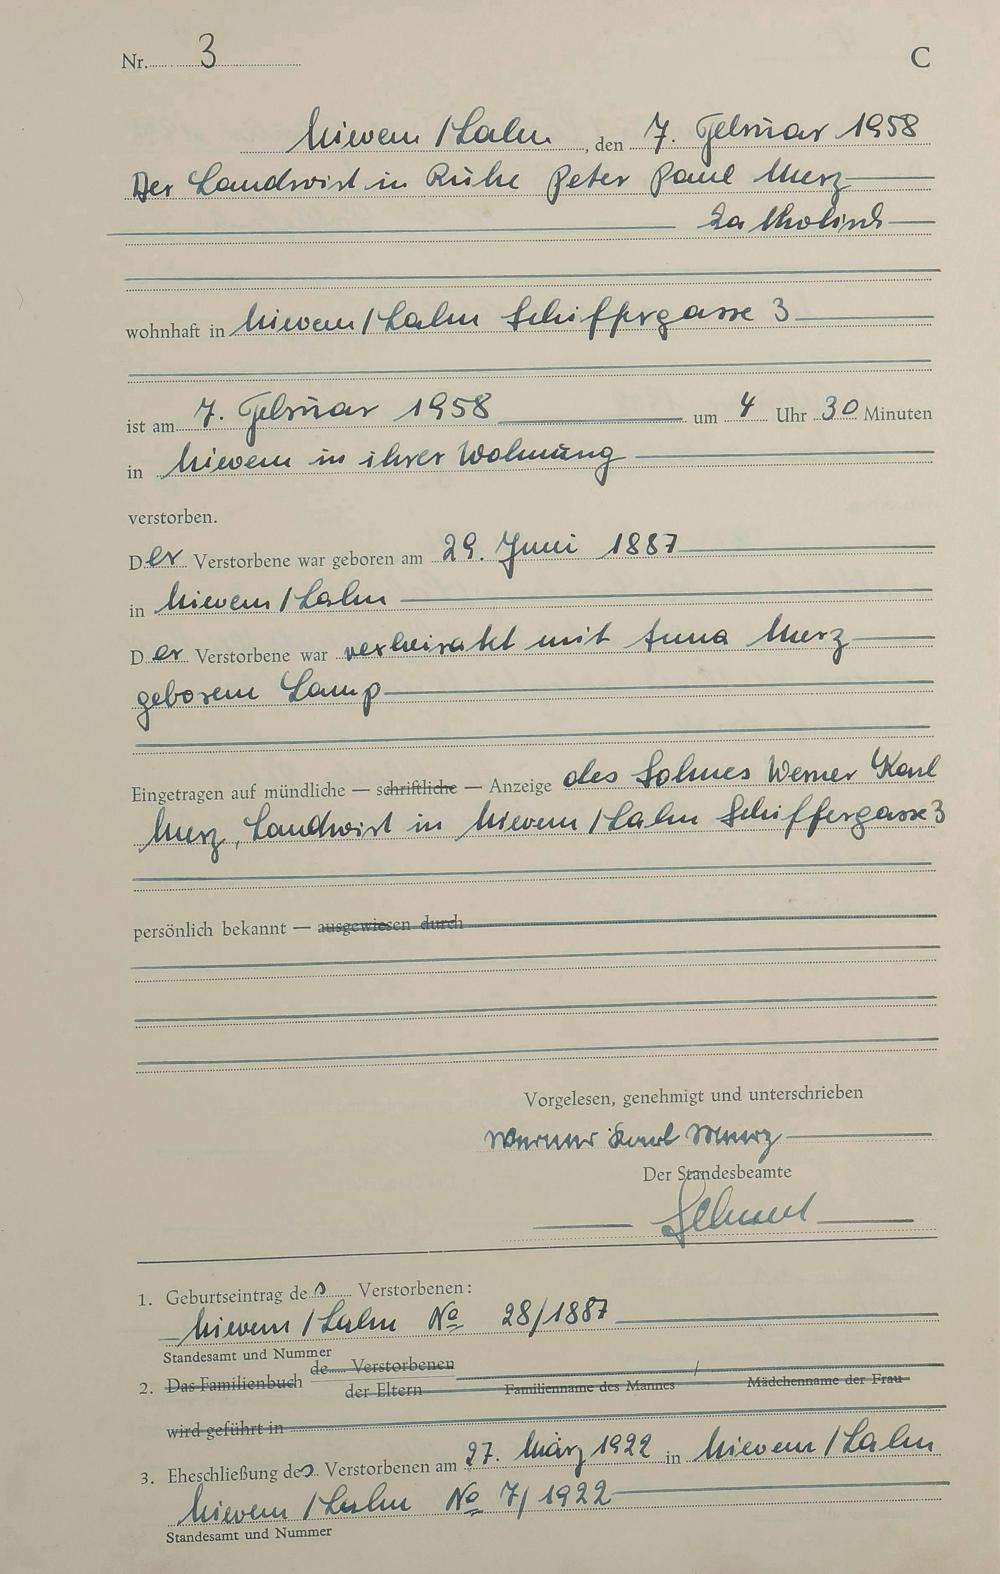 Nr. 3 C
Nievern / Lahn, den 7. Februar 1958
Der Landwirt in Ruhe Peter Paul Merz
katholisch
wohnhaft in Nievern / Lahn Schiffergasse 3
ist am 7. Februar 1958 um 4 Uhr 30 Minuten
in Nievern in ihrer Wohnung
verstorben.
Der Verstorbene war geboren am 29. Juni 1887
in Nievern / Lahn
Der Verstorbene war verheiratet mit Anna Merz
geborene Lamp
Eingetragen auf mündliche — schriftliche — Anzeige des Sohnes Werner Karl
Merz, Landwirt in Nievern / Lahn Schiffergasse 3
persönlich bekannt — ausgewiesen durch
Vorgelesen, genehmigt und unterschrieben
Werner Karl Merz
Der Standesbeamte
1. Geburtseintrag des Verstorbenen:
Nievern / Lahn No 28/1887
Standesamt und Nummer
2. Das Familienbuch de.... Verstorbenen /
der Eltern Familienname des Mannes Mädchenname der Frau
wird geführt in
3. Eheschließung des Verstorbenen am 27. März 1922 in Nievern / Lahn
Nievern / Lahn No 7/1922
Standesamt und Nummer